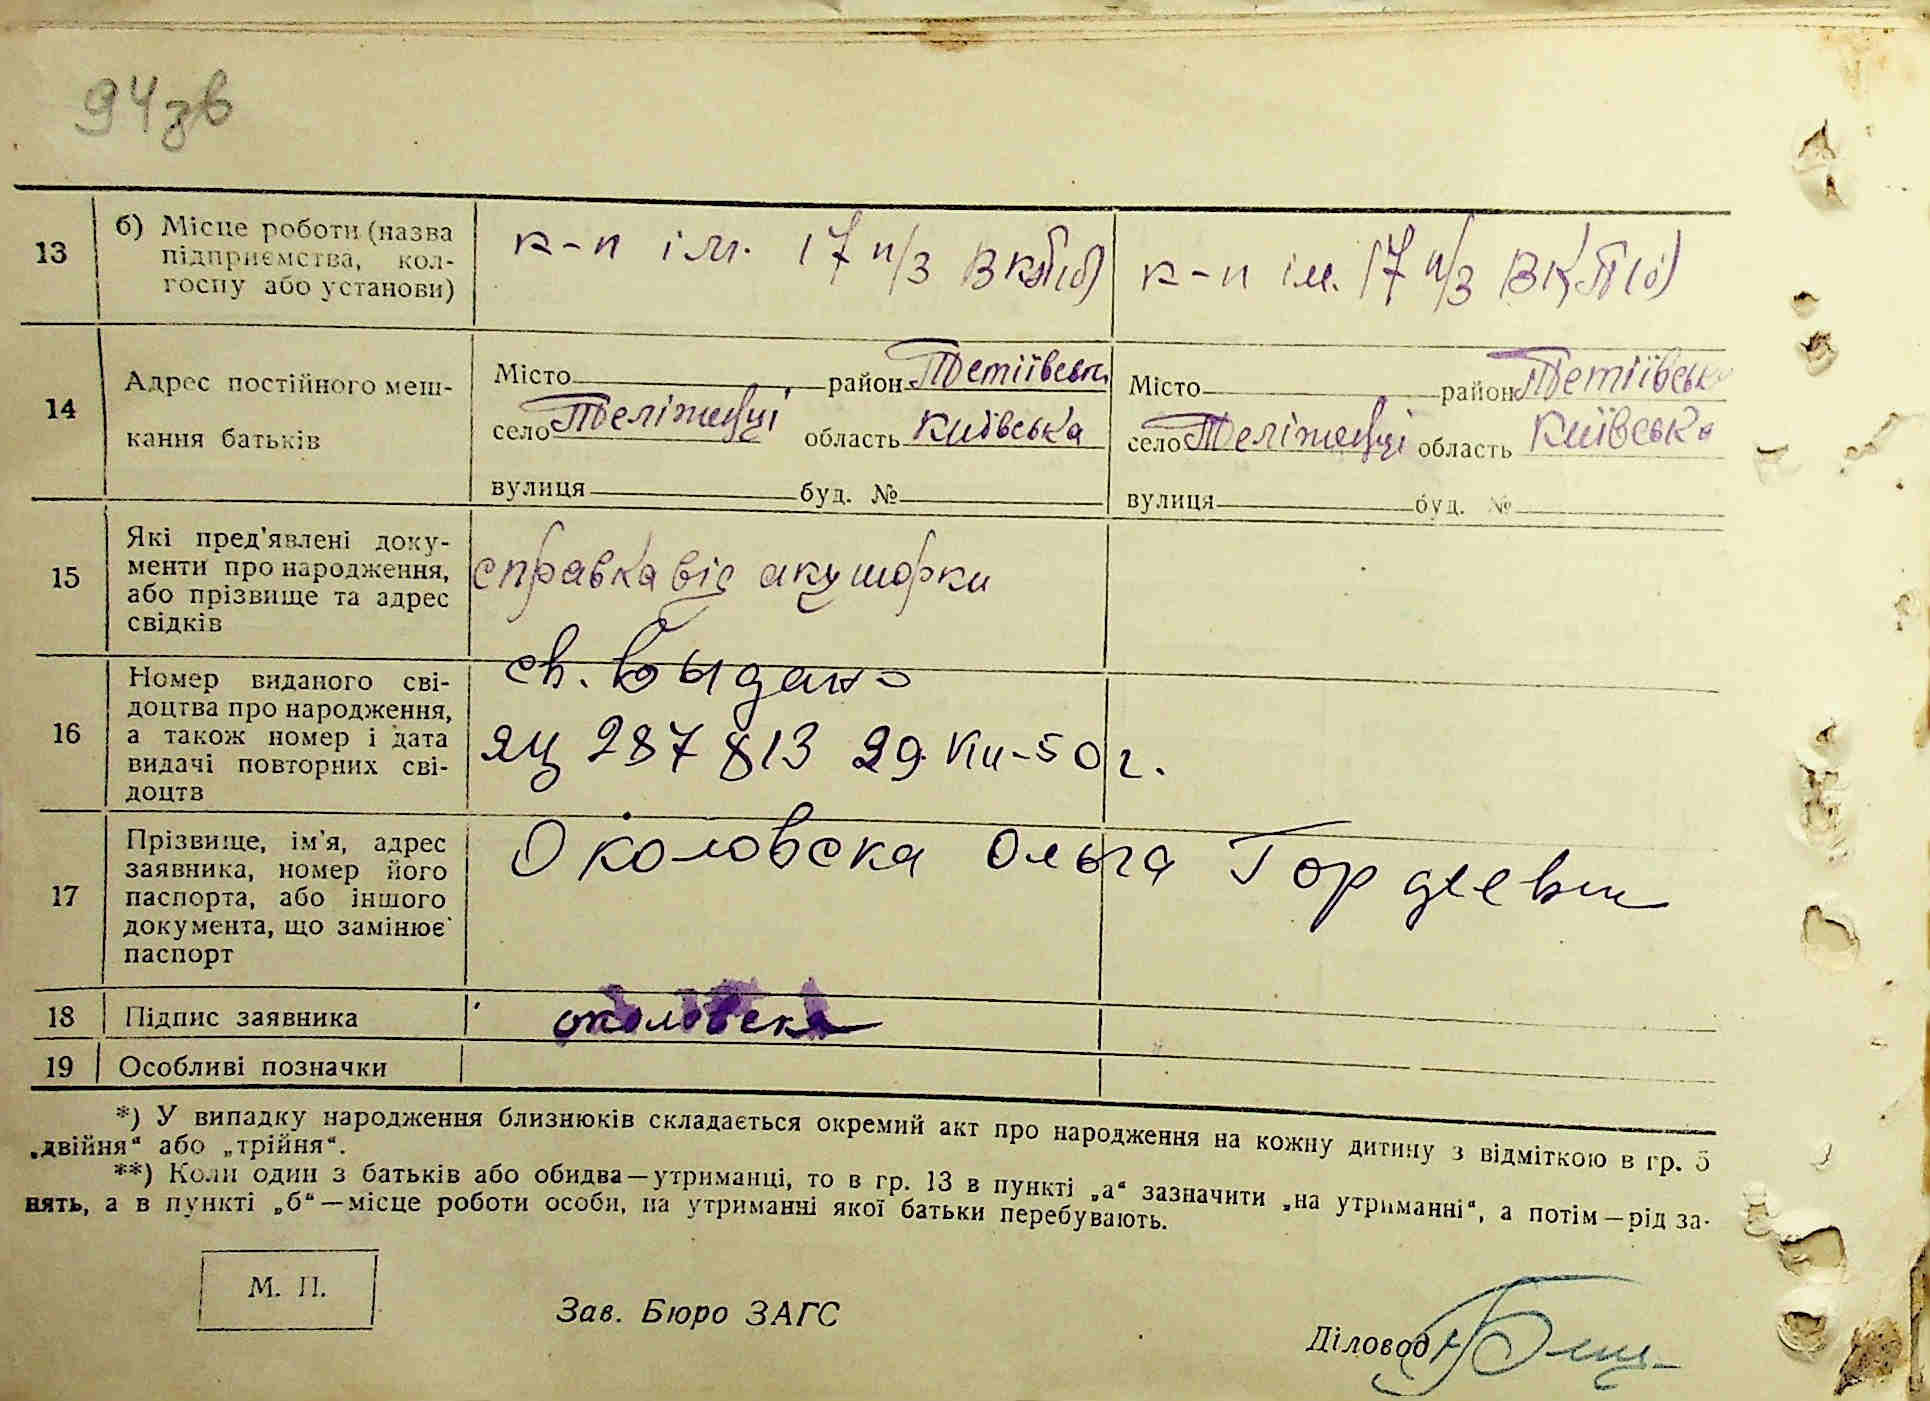 94зв
13
б) Місце роботи (назва
підприємства, кол-
госпу або установи)
к-п ім. 17 п/з ВКП(б)
к-п ім. 17 п/з ВКП(б)
14
Адрес постійного меш-
кання батьків
Місто район Тетіївськ
село Теліжинці область Київська
вулиця буд. №
Місто район Тетіївськ
село Теліжинці область Київська
вулиця буд. №
15
Які пред'явлені доку-
менти про народження,
або прізвище та адрес
свідків
справка від акушорки
16
Номер виданого сві-
доцтва про народження,
а також номер і дата
видачі повторних сві-
доцтв
св. выдано
ЯЦ 287813 29. 50 г.
17
Прізвище, ім'я, адрес
заявника, номер його
паспорта, або іншого
документа, що замінює
паспорт
Околовска Ольга Гордеевн
18
Підпис заявника
околовска
19
Особливі позначки
*) У випадку народження близнюків складається окремий акт про народження на кожну дитину з відміткою в гр. 5
„двійня“ або „трійня“.
**) Коли один з батьків або обидва—утриманці, то в гр. 13 в пункті „а“ зазначити „на утриманні“, а потім—рід за-
нять, а в пункті „б“—місце роботи особи, на утриманні якої батьки перебувають.
М. П.
Зав. Бюро ЗАГС
Діловод